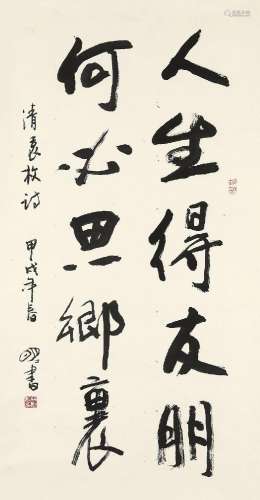 人生得友朋
何必思鄉裏
清袁枚诗 甲戌年春 書